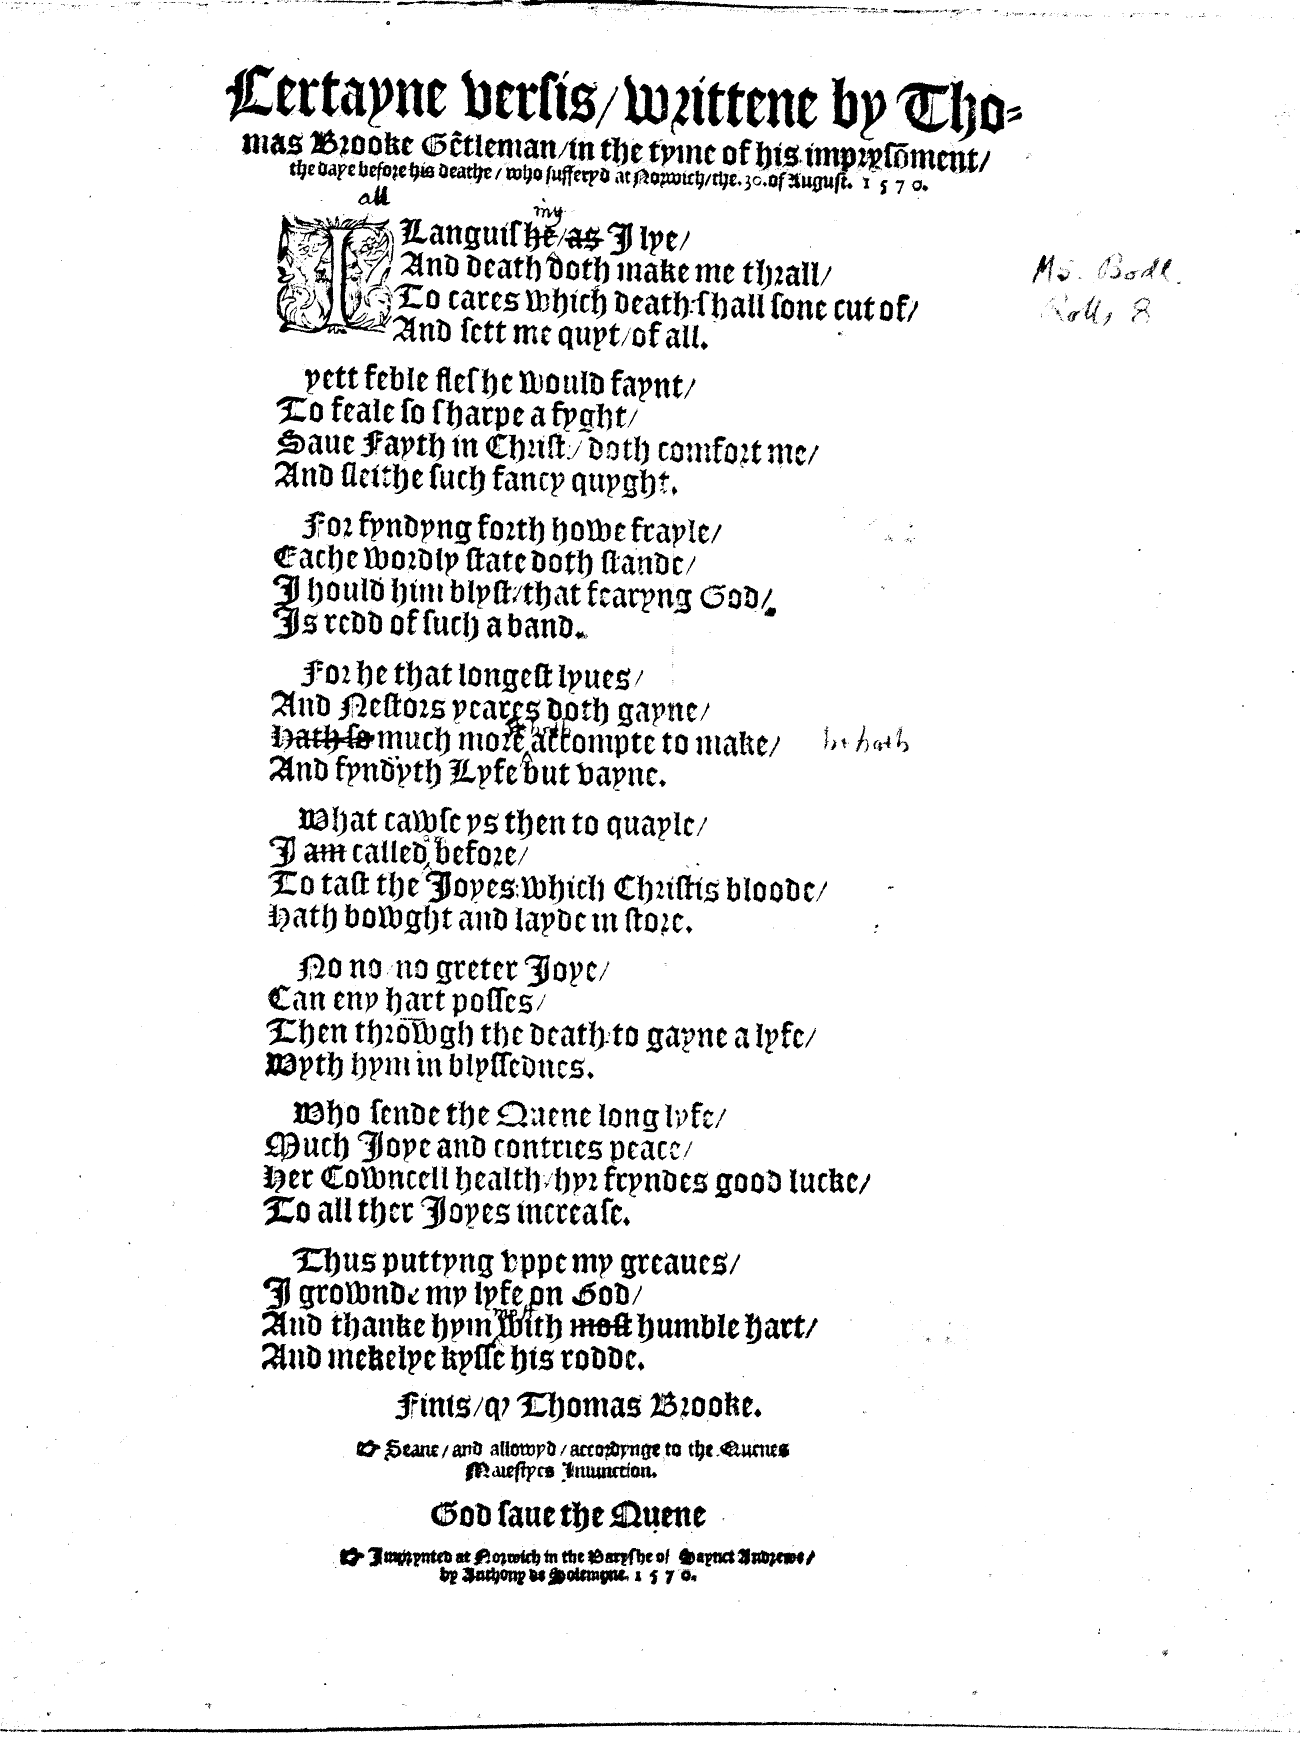 Certayne versis/ writtene by Tho-
mas Brooke Gẽtleman/in the tyme of his impryſõment/
the daye before his deathe/ who ſufferyd at Norwich/the.30.of Auguſt. 1570.
all
my
I Languiſhe/as I lye/
And death doth make me thrall/
To cares which death ſhall ſone cut of/
And ſett me quyt/of all.
Ms. Bodl.
Roll, 8
yett feble fleſhe would faynt/
To feale ſo ſharpe a fyght/
Saue Fayth in Chriſt/ doth comfort me/
And fleithe ſuch fancy quyght.
For fyndyng forth howe frayle/
Eache wordly ſtate doth ſtande/
I hould him blyſt/that fearyng God/
Is redd of ſuch a band.
For he that longeſt lyues/
And Neſtors yeares doth gayne/
Hath ſo much more accompte to make/ he hath
And fyndyth Lyfe but vayne.
What cawſe ys then to quayle/
I am called before/
To taſt the Joyes which Chriſtis bloode/
Hath bowght and layde in ſtore.
No no no greter Joye/
Can eny hart poſſes/
Then throwgh the death to gayne a lyfe/
Wyth hym in blyſſednes.
Who ſende the Quene long lyfe/
Much Joye and contries peace/
Her Cowncell health/hyr fryndes good lucke/
To all ther Joyes increaſe.
Thus puttyng vppe my greaues/
I grownde my lyfe on God/
And thanke hym with moſt humble hart/
And mekelye kyſſe his rodde.
Finis/ꝙ Thomas Brooke.
☞ Seane/and allowyd/accordynge to the Quenes
Maieſtyes Iniunction.
God ſaue the Quene
☞ Imprynted at Norwich in the Paryſhe of Saynct Andrewe/
by Anthony de Solempne. 1570.